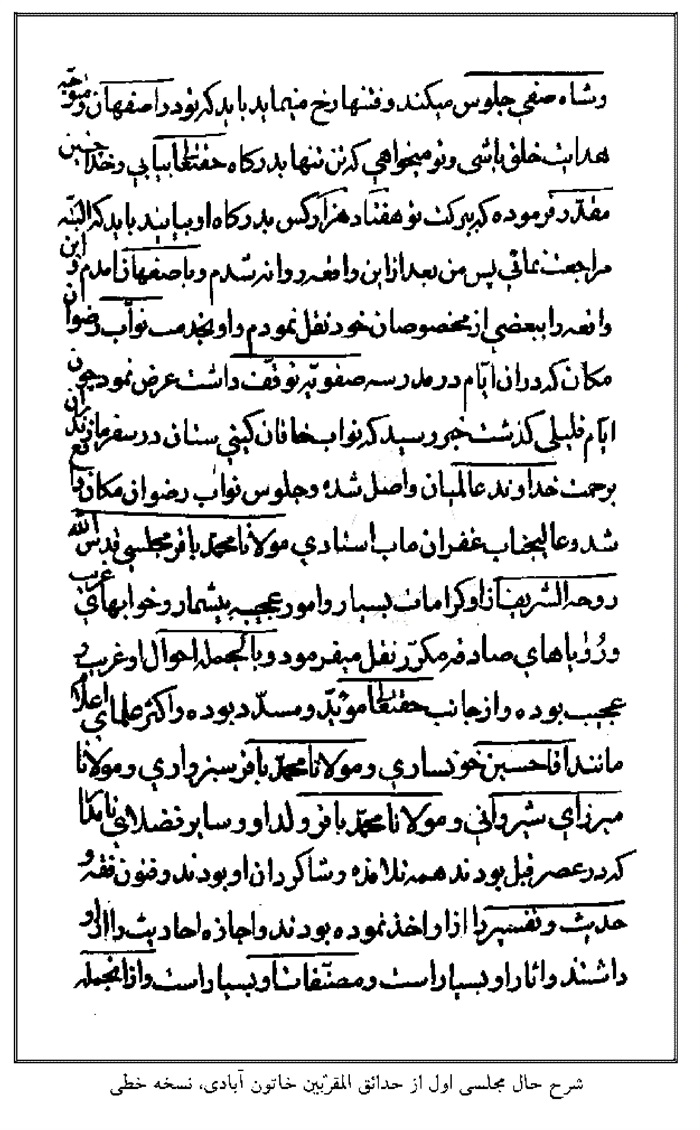 و شاه صفی جلوس میکند و فتنها رخ مینماید باید که تو در اصفهان متوجه
هدایت خلق باشی و تو میخواهی که تن تنها بدرکاه حقتعالی بیایی و خدا چنین
مقدّر فرموده که ببرکت تو هفتاد هزار کس بدرکاه او بیایند باید که البتّه
مراجعت نمائی پس من بعد از این واقعه روانه شدم و باصفهان آمدم و این
واقعه را ببعضی از مخصوصان خود نقل نمودم و او بخدمت نوّاب رضوان
مکان که در ان ایّام در مدرسه صفویّه توقّف داشت عرض نمود چون
ایّام قلیلی کذشت خبر رسید که نواب خاقان کیتی ستان در سفر مازندران
برحمت خداوند عالمیان واصل شد و جلوس نوّاب رضوان مکان واقع
شد و عالیجناب غفران ماب استادی مولانا محمّد باقر مجلسی قدس الله
روحه الشریف از او کرامات بسیار و امور عجیبه بیشمار و خوابهای غریب
و رؤیاهای صادقه مکرّر نقل میفرمود و بالجمله احوال او غریب و
عجیب بوده و از جانب حقتعالی مؤیّد و مسدّد بوده و اکثر علمای اعلام
مانند اقا حسین خونساری و مولانا محمّد باقر سبزواری و مولانا
میرزای شیروانی و مولانا محمّد باقر ولد او و سایر فضلای
که در عصر قبل بودند همه تلامذه و شاکردان او بودند و فنون فقه و
حدیث و تفسیر را از او اخذ نموده بودند و اجازه احادیث از او
داشتند و اثار او بسیار است و مصنّفات او بسیار است و از انجمله
شرح حال مجلسی اول از حدائق المقرّبین خاتون آبادی، نسخه خطی